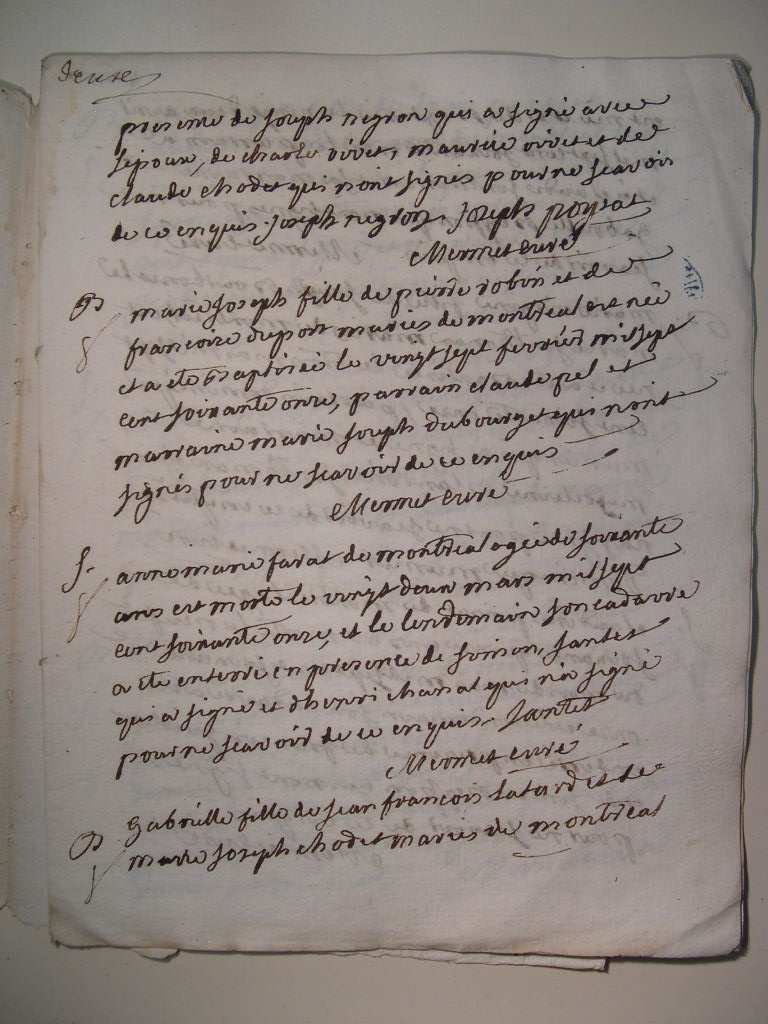 deuxe
presence de joseph negron qui a signé avec
lepoux, de charle vivet, maurice vivet et de
claude chodet qui nont signés pour ne scavoir
de ce enquis. joseph negron. joseph poysat
Mermet curé
B
marie joseph fille de pierre robin et de
francoise duport mariés de montreal est née
et a été baptisée le vingt sept fevrier mil sept
cent soixante onze, parrain claude pel et
marraine marie joseph dubourget qui nont
signés pour ne scavoir de ce enquis
Mermet curé
S.
anne marie farat de montreal agée de soixante
ans est morte le vingt deux mars mil sept
cent soixante onze, et le lendemain son cadavre
a été enterré en presence de simon, jantet
qui a signé et dhenri chanal qui n'a signé
pour ne scavoir de ce enquis. jantet
Mermet curé
B
Gabrielle fille de jean francois latard et de
marie joseph chodet mariés de montreal